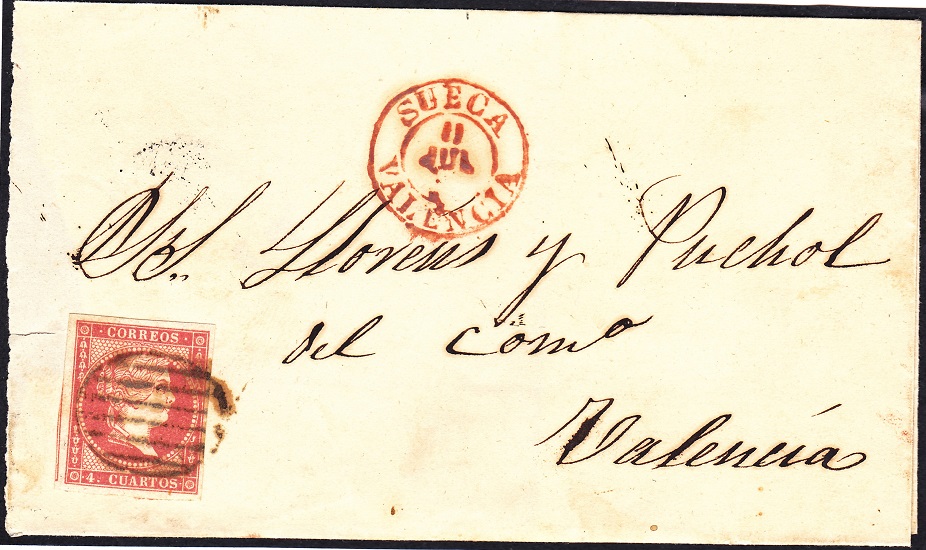 SUECA
11
JUL
VALENCIA
Llorens y Puchol
del comº
Valencia
CORREOS
4. CUARTOS